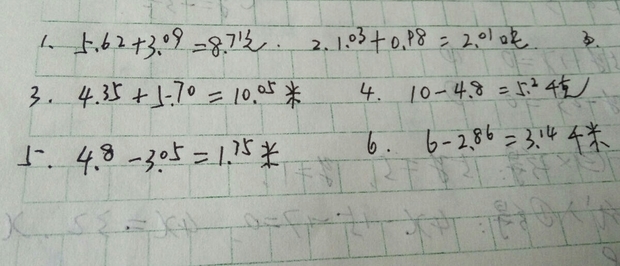 1. 5.62+3.09=8.71元. 2. 1.03+0.98=2.01吨 3.
3. 4.35+5.70=10.05米 4. 10-4.8=5.2千克
5. 4.8-3.05=1.75米 6. 6-2.86=3.14千米